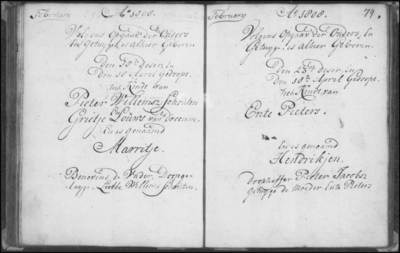 February A:o 1808.
Volgens Opgaaf der Ouders
en Getuyge is alhier Geboren
Den 20:ste deser, en
Den 10 April Gedoopt
het Kindt van
Pieter Willemsz Scholten
Grietje Douws van Doccum.
En is genaamd
Marritje.
Benevens de Vader, Doopge-
tuyge Lutske Willems Scholten.
February A:o 1808. 74.
Volgens Opgaaf der Ouders, en
Getuyge, is alhier Geboren
Den 25:ste deser, en
Den 10:de April Gedoopt.
het Kindt van
Ente Pieters.
En is genaamd
Hendrikjen.
Doopheffer Pieter Jacobs
Getuyge de Moeder Ente Pieters